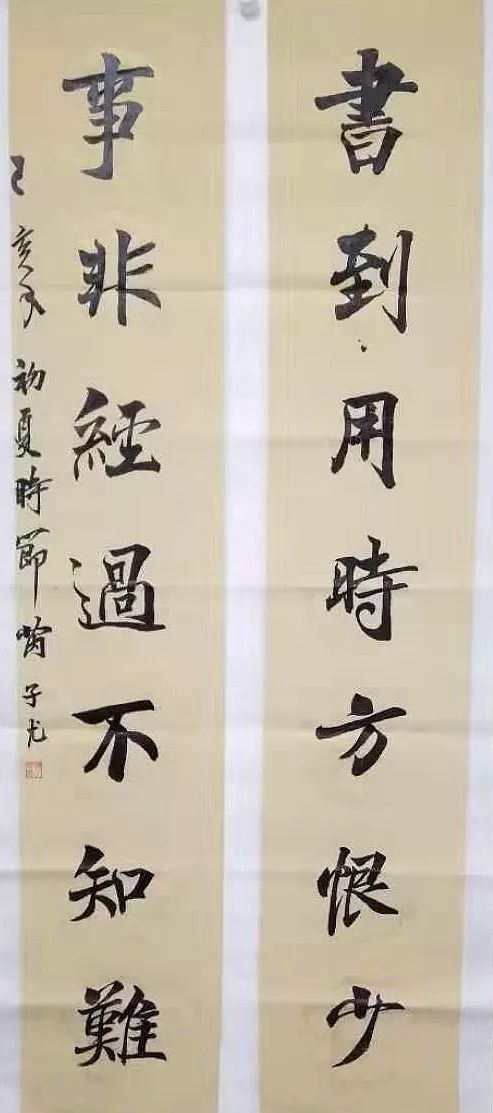 書到用時方恨少
事非經過不知難
己亥年初夏時節喻子尤